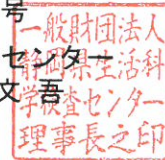 号
センター
文吾
一般財団法人
静岡県生活科
学検査センター
理事長之印